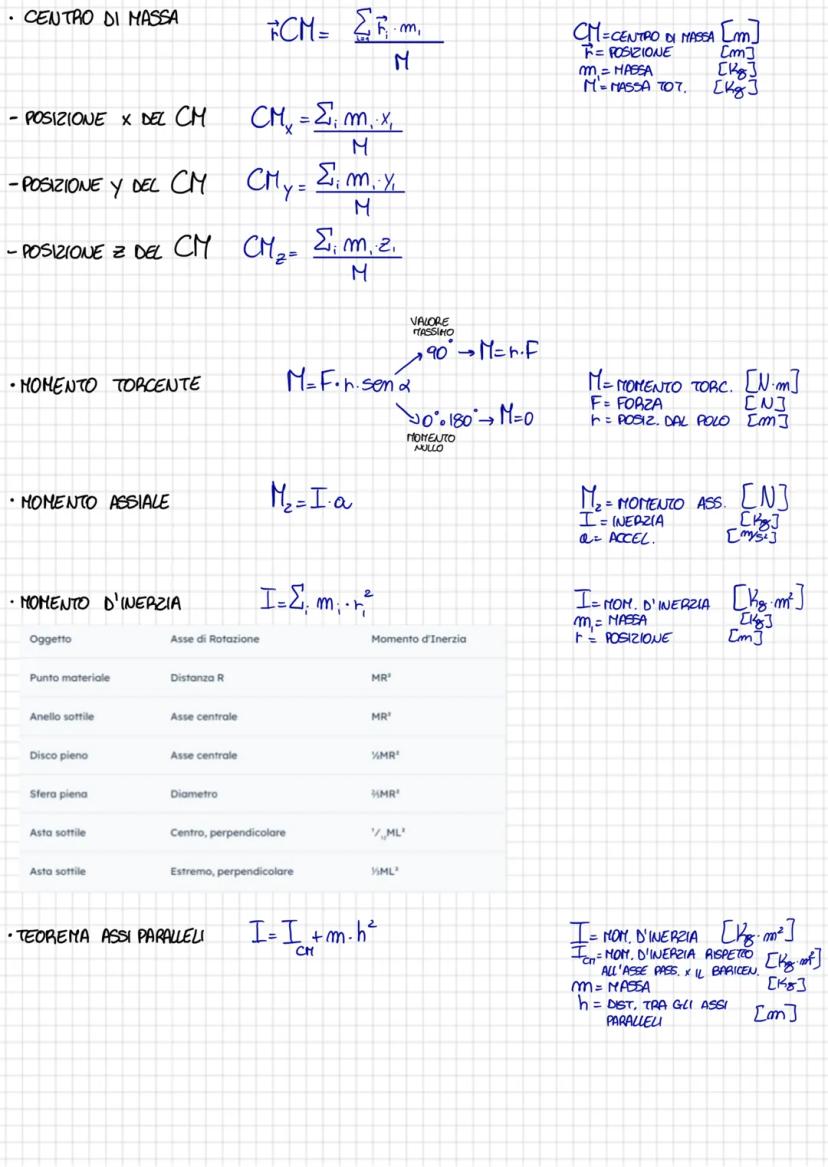 · CENTRO DI MASSA r⃗CM = Σᵢ r⃗ᵢ · mᵢ / M CM = CENTRO DI MASSA [m]
r⃗ = POSIZIONE [m]
mᵢ = MASSA [Kg]
M = MASSA TOT. [Kg]
- POSIZIONE X DEL CM CMₓ = Σᵢ mᵢ · xᵢ / M
- POSIZIONE Y DEL CM CM_Y = Σᵢ mᵢ · yᵢ / M
- POSIZIONE Z DEL CM CM_Z = Σᵢ mᵢ · zᵢ / M
VALORE
MASSIMO
90° → M = r · F
· MOMENTO TORCENTE M = F · r · sen α M = MOMENTO TORC. [N·m]
F = FORZA [N]
r = POSIZ. DAL POLO [m]
0° o 180° → M = 0
MOMENTO
NULLO
· MOMENTO ASSIALE M_z = I · a M_z = MOMENTO ASS. [N]
I = INERZIA [Kg]
a = ACCEL. [m/s²]
· MOMENTO D'INERZIA I = Σᵢ mᵢ · rᵢ² I = MOM. D'INERZIA [Kg · m²]
mᵢ = MASSA [Kg]
r = POSIZIONE [m]
Oggetto Asse di Rotazione Momento d'Inerzia
Punto materiale Distanza R MR²
Anello sottile Asse centrale MR²
Disco pieno Asse centrale ½MR²
Sfera piena Diametro ⅖MR²
Asta sottile Centro, perpendicolare ¹/₁₂ML²
Asta sottile Estremo, perpendicolare ⅓ML²
· TEOREMA ASSI PARALLELI I = I_CM + m · h² I = MOM. D'INERZIA [Kg · m²]
I_CM = MOM. D'INERZIA RISPETTO
ALL'ASSE PASS. x IL BARICEN. [Kg · m²]
m = MASSA [Kg]
h = DIST. TRA GLI ASSI
PARALLELI [m]